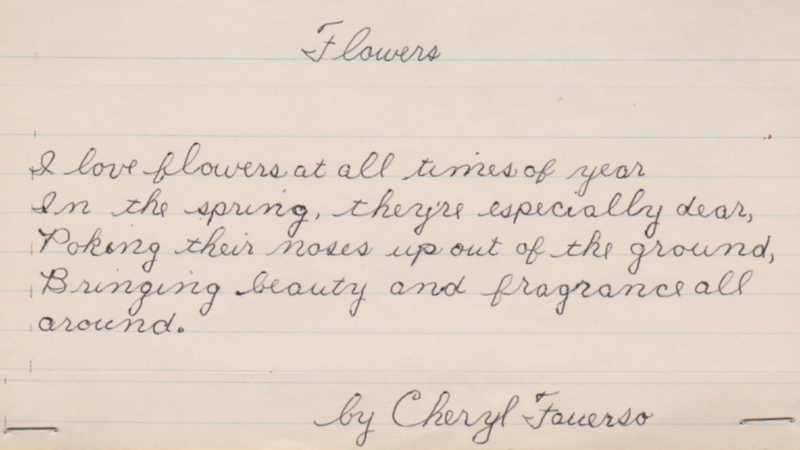 Flowers
I love flowers at all times of year
In the spring, they're especially dear,
Poking their noses up out of the ground,
Bringing beauty and fragrance all
around.
by Cheryl Fauerso